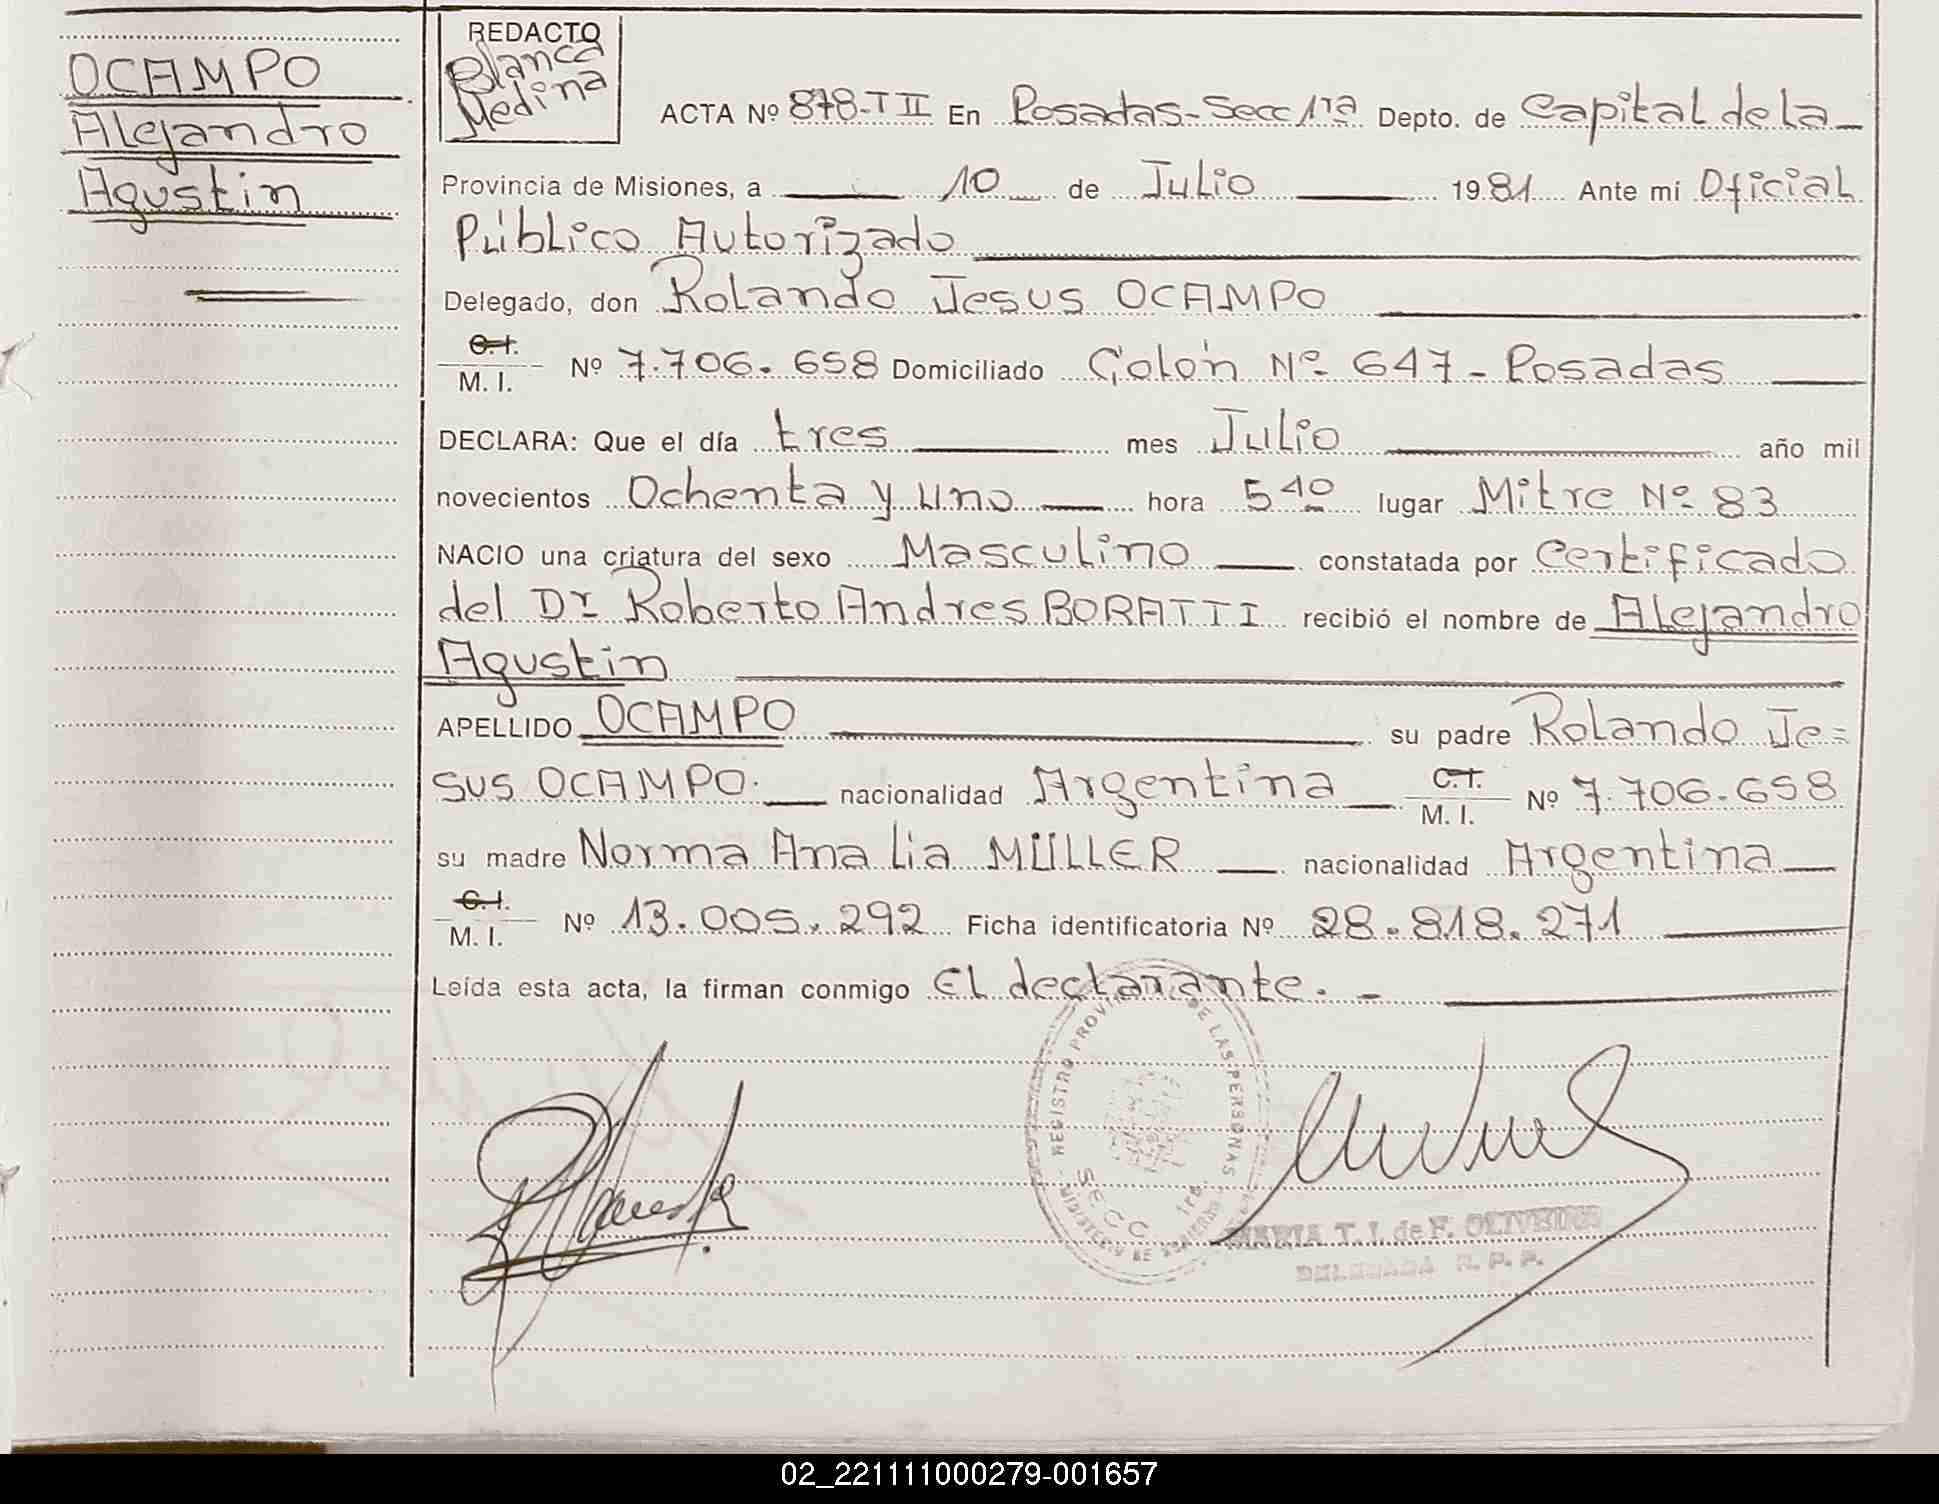 OCAMPO
Alejandro
Agustin
REDACTO
Blanca
Medina
ACTA Nº 878-T II En Posadas-Secc 1ra Depto. de Capital de la
Provincia de Misiones, a 10 de Julio 1981 Ante mi Oficial
Público Autorizado
Delegado, don Rolando Jesus OCAMPO
C.I.
M. I. Nº 7.706.658 Domiciliado Colón Nº 647 - Posadas
DECLARA: Que el día tres mes Julio año mil
novecientos Ochenta y uno hora 5 40 lugar Mitre Nº 83
NACIO una criatura del sexo Masculino constatada por Certificado
del Dr Roberto Andres BORATTI recibió el nombre de Alejandro
Agustin
APELLIDO OCAMPO su padre Rolando Je=
sus OCAMPO. nacionalidad Argentina C.I. M. I. Nº 7.706.658
su madre Norma Analia MÜLLER nacionalidad Argentina
C.I.
M. I. Nº 13.005.292 Ficha identificatoria Nº 28.818.271
Leída esta acta, la firman conmigo El declarante. -
REGISTRO PROVI DE LAS PERSONAS
SECC 1ra.
MINISTERIO DE GOBIERNO
MARIA T. I. de F. OLIVEIRA
DELEGADA R. P. P.
02_221111000279-001657